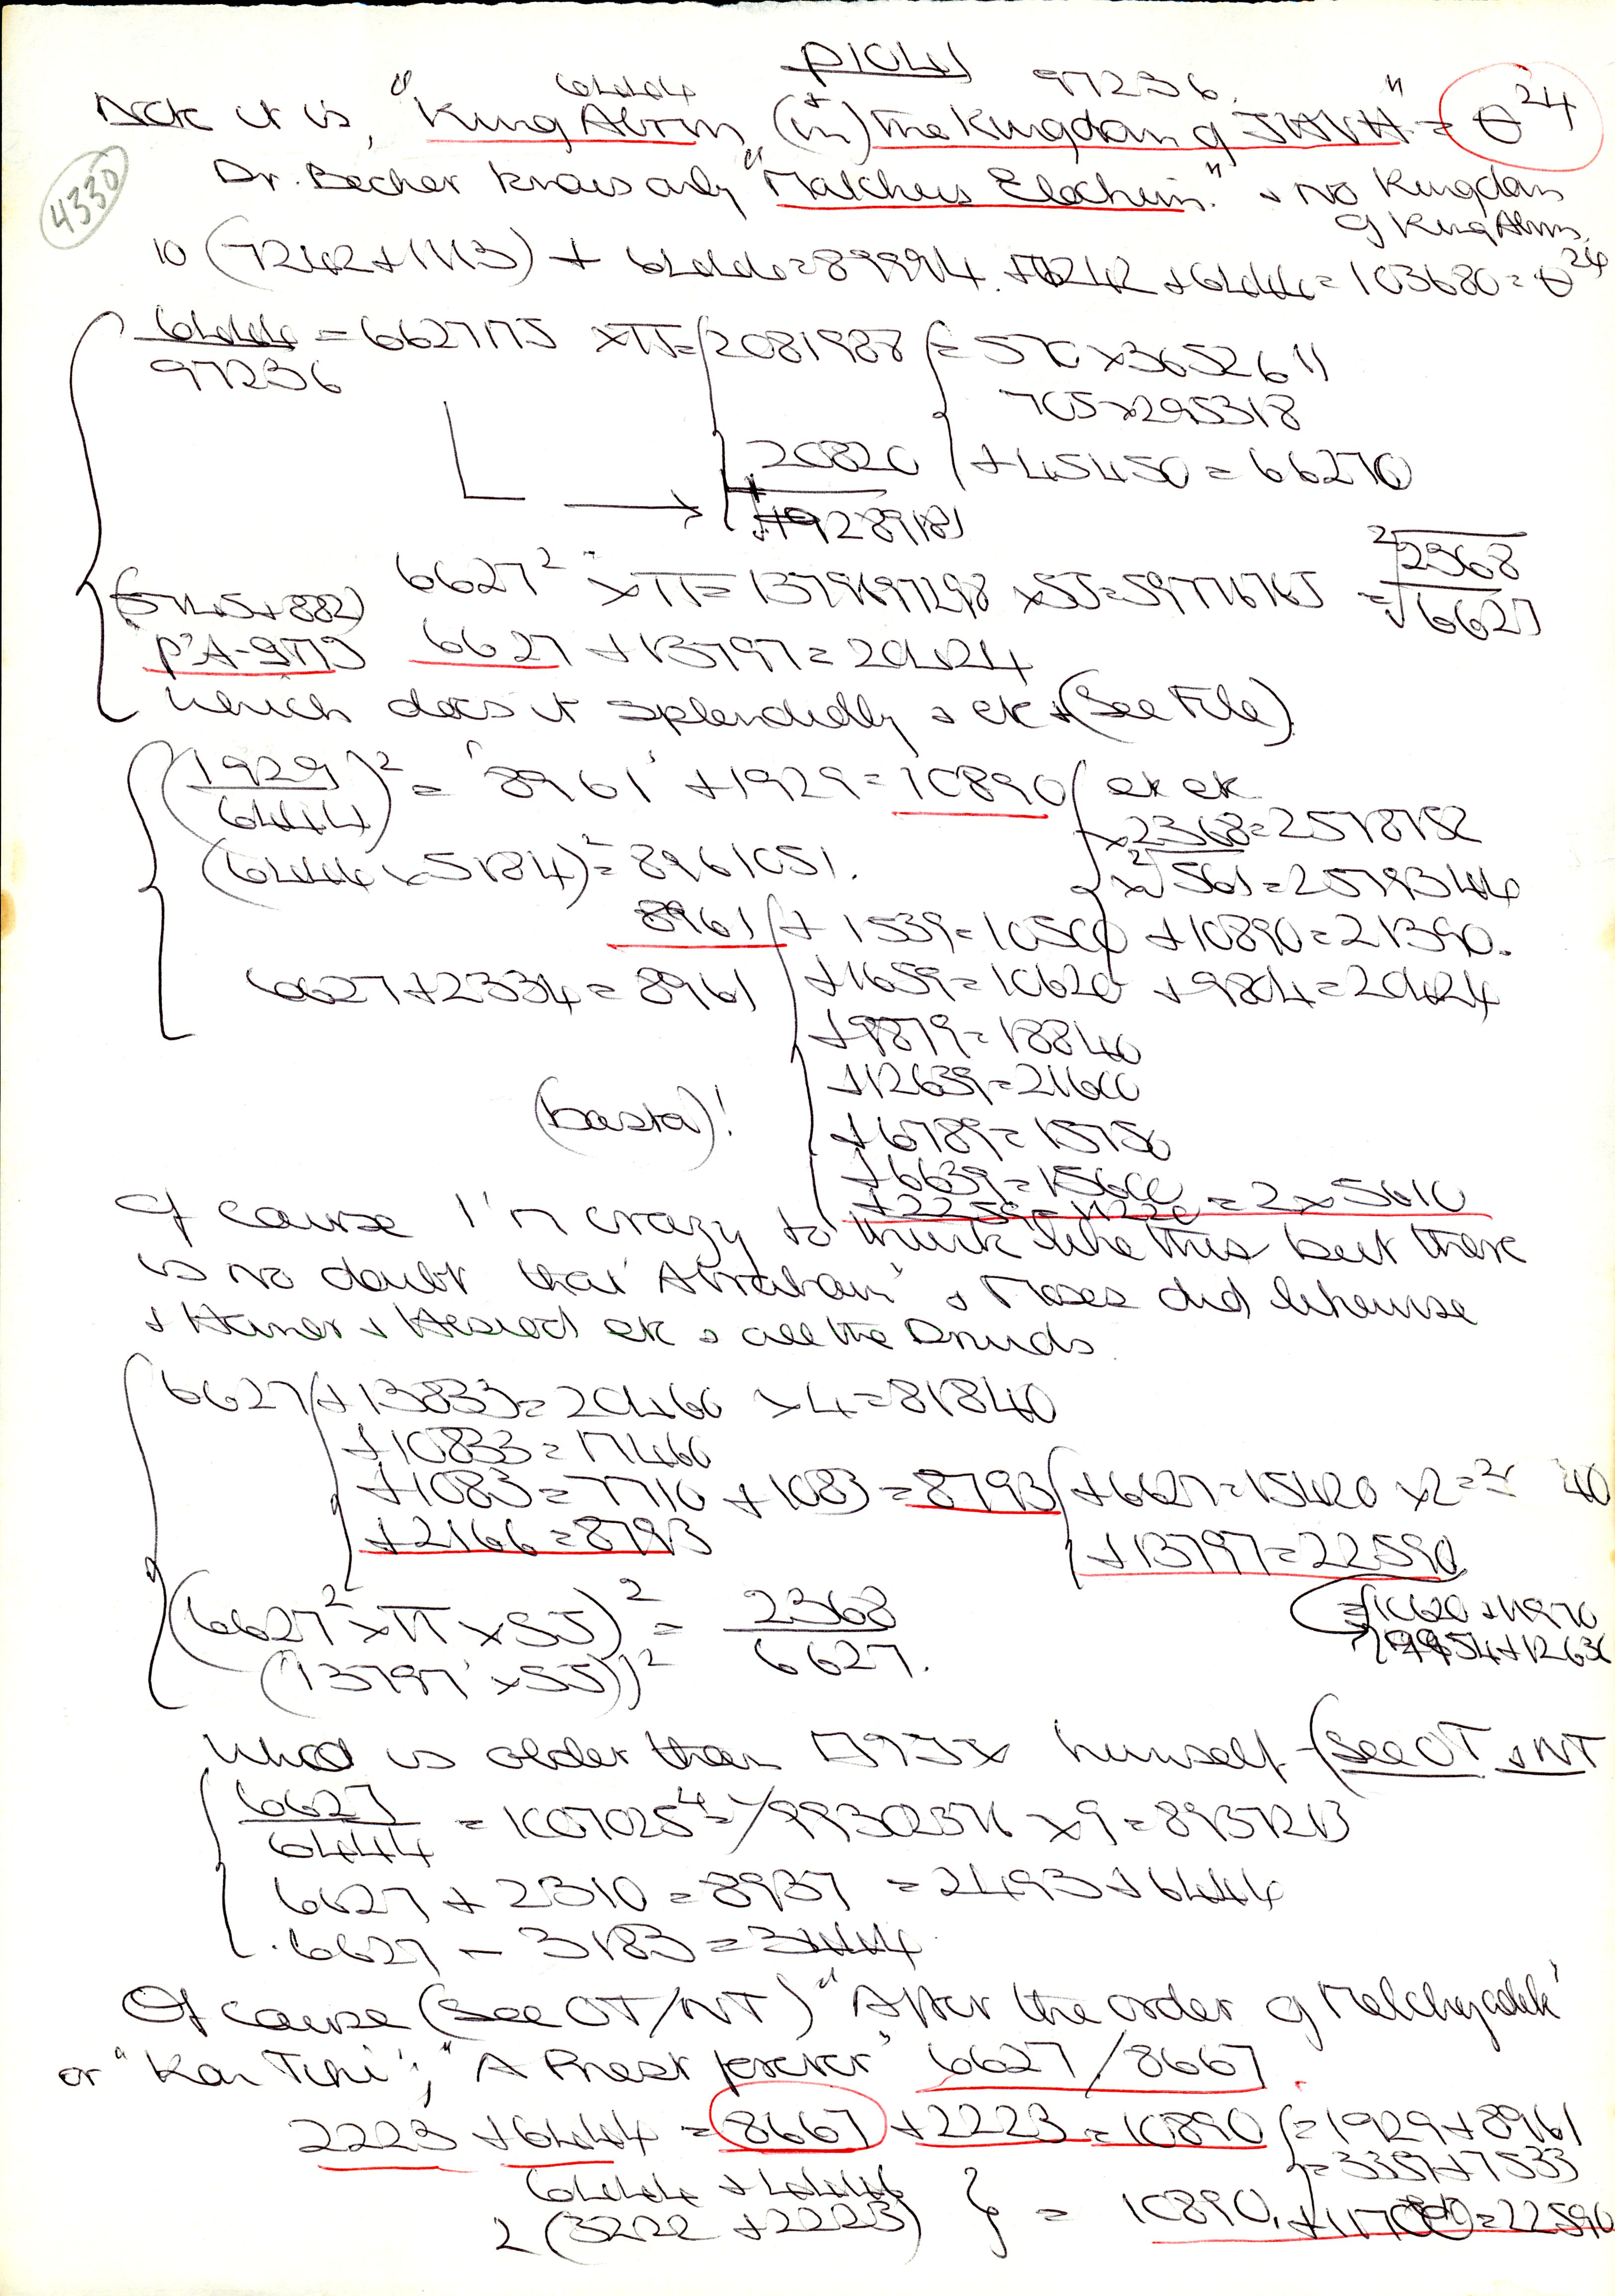 6444 97236.
Dick it is, "King Abrm (+in) the Kingdom of JHVH" = θ²⁴
4330
Dr. Becher knows only "Malchus Elochim." & no Kingdom
of King Abrm.
10 (7242+1113) + 6444 = 89994. +7242 +6444 = 103680 = θ²⁴
6444/97236 = 6627175 ×π = 2081988 = 570 × 3652611
705 × 295318
20820 + 45450 = 66270
1928918)
6627² ×π = 1379697298 ×55 = 59776765 = ²√2368/6627
(5745+882)
6627 + 13797 = 20424
which does it splendidly & etc & (See File).
(1929/6444)² = '8961' +1929 = 10890 etc etc
×2368 = 2578752
(6444 × 5184)² = 8961051.
×²√561 = 25793444
8961 + 1539 = 10500 + 10890 = 21390.
6627 + 2334 = 8961 + 1659 = 10620 + 9804 = 20424
+9879 = 18840
+12639 = 21600
(basta)!
+6789 = 15750
+6639 = 15600
+2259 = 11220 = 2 × 5610
Of course I'm crazy to think like this but there
is no doubt that 'Abraham' & Moses did likewise
& Homer & Hesiod etc & all the Druids.
6627 + 13833 = 20460 ×4 = 81840
+10833 = 17460
+1083 = 7710 + 1083 = 8793 +6627 = 15420 ×2 = 3 40
+2166 = 8793 +13797 = 22590
(6627² × π × 55)² = 2368/6627.
= 10620 + 11970
('13797' × 55)²
who is older than himself (See OT & NT
6627/6444 = 1007025⁴ = /99302376 × 9 = 8937213
6627 + 2310 = 8937 = 2493 + 6444
6627 − 3183 = 3444
Of course (see OT/NT) "After the order of Melchyzadek'
or "Kon Tiki"; "A Priest forever" 6627/8667.
2223 + 6444 = 8667 + 2223 = 10890 = 1929 + 8961
= 3357 + 7533
6444 + 4446
2 (3222 + 2223) = 10890. + 11700 = 22590